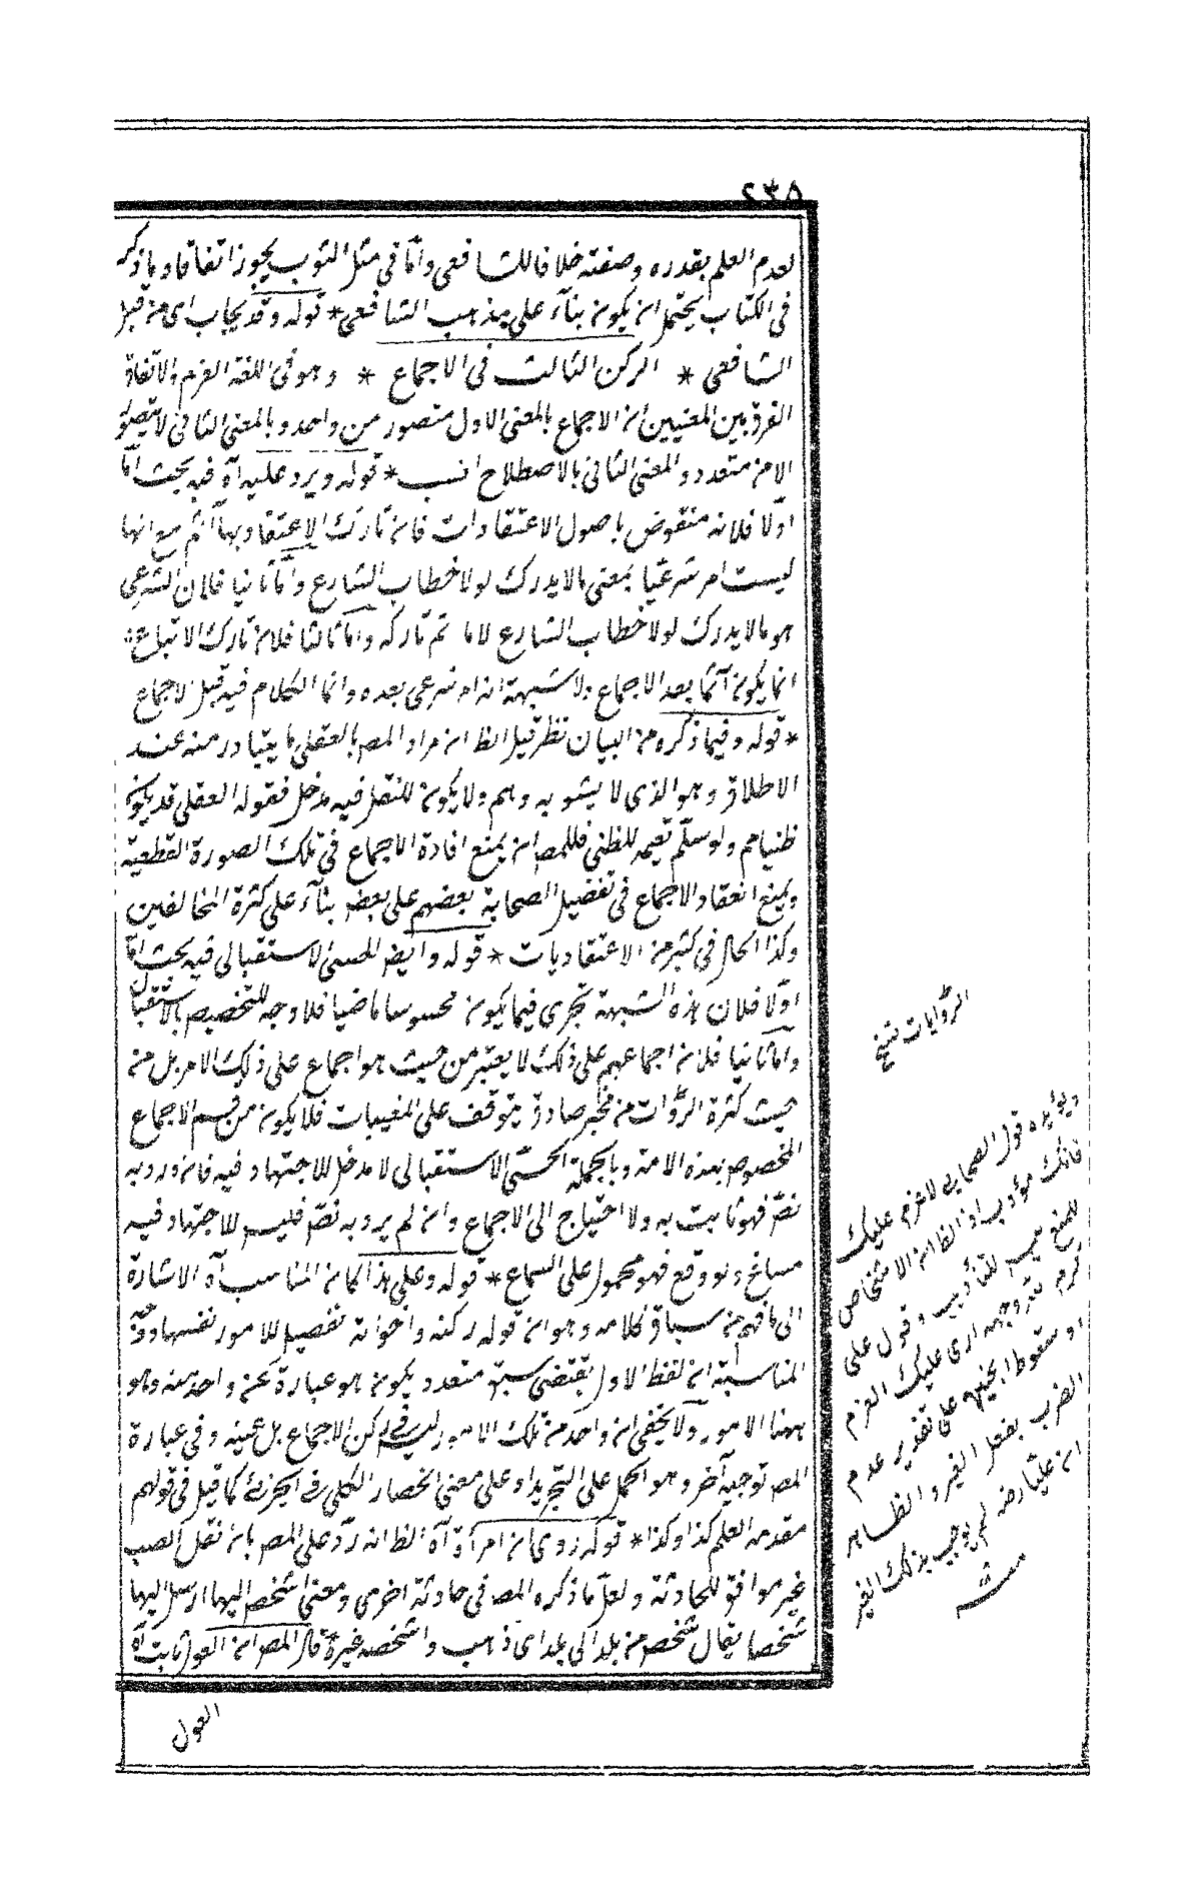 ٢٣٥
لعدم العلم بقدره وصفته خلافا للشافعى واما فى مثل الثوب يجوز اتفاقا وما ذكر
فى الكتاب يحتمل ان يكون بناء على مذهب الشافعى * قوله وقد يجاب اى من قبل
الشافعى * الركن الثالث فى الاجماع * وهو فى اللغة العزم والاتفاق
الفرق بين المعنيين ان الاجماع بالمعنى الاول متصور من واحد وبالمعنى الثانى لا يتصور
الا من متعدد والمعنى الثانى بالاصطلاح انسب * قوله ويرد عليه آه فيه بحث اما
اولا فلانه منقوض باصول الاعتقادات فان تارك الاعتقاد بها آثم مع انها
ليست امر شرعيا بمعنى مالا يدرك لولا خطاب الشارع واما ثانيا فلان الشرعى
هو مالا يدرك لولا خطاب الشارع لا ما تم تاركه واما ثالثا فلان تارك الاتباع
انما يكون آثما بعد الاجماع ولا شبهة انه امر شرعى بعده وانما الكلام فيه قبل الاجماع
* قوله وفيما ذكره من البيان نظر قيل الظ ان مراد المصـ بالعقلى ما يتبادر منه عند
الاطلاق وهو الذى لا يشوبه وهم ولا يكون للنقل فيه مدخل فقوله العقلى قد يكون
ظنيا مم ولو سلم تعميمه للظنى فللمصـ ان يمنع افادة الاجماع فى تلك الصورة القطعية
ويمنع انعقاد الاجماع فى تفضيل الصحابة بعضهم على بعض بناء على كثرة المخالفين
وكذا الحال فى كثير من الاعتقاديات * قوله وايضا الحسى الاستقبالى فيه بحث اما
اولا فلان هذه الشبهة تجرى فيما يكون محسوسا ماضيا فلا وجه للتخصيص بالاستقبال
واما ثانيا فلان اجماعهم على ذلك لا يعتبر من حيث هو اجماع على ذلك الامر بل من
حيث كثرة الروات من مخبر صادق يتوقف على المغيبات فلا يكون من قسم الاجماع
المخصوص بهذه الامة وبالجملة الحسى الاستقبالى لا مدخل للاجتهاد فيه فان ورد به
نص فهو ثابت به ولا احتياج الى الاجماع وان لم يرد به نص فليس للاجتهاد فيه
مساغ ولو وقع فهو محمول على السماع * قوله وعلى هذا كان المناسب آه الاشارة
الى ما فهم من سباق كلامه وهو ان قوله ركنه واخواته تفصيل للامور نفسها ووجه
المناسبة ان لفظ الاول يقتضى سبق متعدد يكون هو عبارة عن واحد منه وهو
ههنا الامور ولا يخفى ان واحد من تلك الامور ليس فى ركن الاجماع بل عينه وفى عبارة
المصـ توجيه آخر وهو الحمل على التجريد او على معنى انحصار الكلى فى الجزئى كما قيل فى قولهم
مقدمة العلم كذا وكذا * قوله روى ان امرأة آه الظ انه رد على المصـ بان نقل الصب
غير موافق للحادثة ولعل ما ذكره المصـ فى حادثة اخرى ومعنى اشخص اليها ارسل اليها
شخصا يقال شخص من بلد الى بلد اى ذهب واشخصه غيره * قال المصـ ان العول ثابت آه
العول
الروايات نسخ
ويؤيده قول الصحابى لا غرم عليك
فانك مؤدب اذ الظ ان الاشخاص
للمنع سبب للتأديب وقول على
كرم الله وجهه ارى عليك الغرم
او سقوط الجنين على تقدير عدم
الضرب بفعل الغير والظاهر
ان عليا رضه لم يوجب بذلك الغير
منه